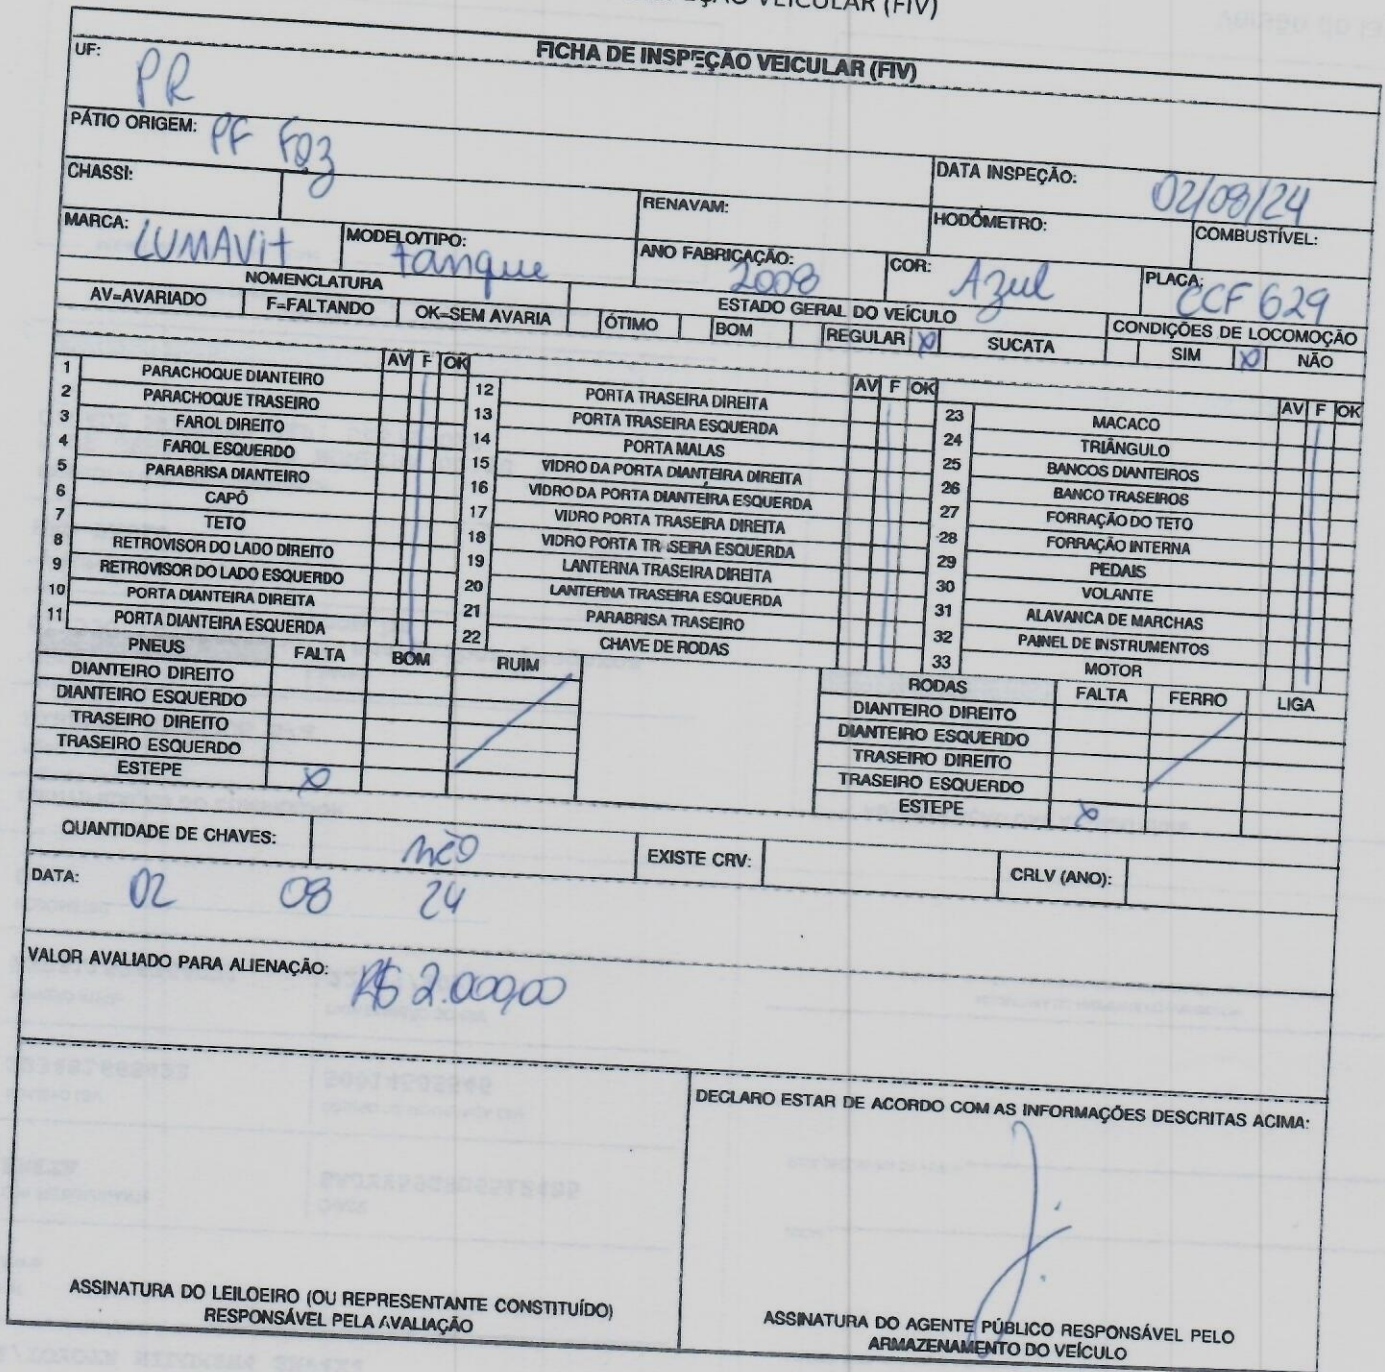 ÇÃO VEICULAR (FIV)
FICHA DE INSPEÇÃO VEICULAR (FIV)
UF: PR
PÁTIO ORIGEM: PF Foz
DATA INSPEÇÃO: 02/08/24
CHASSI:
RENAVAM:
HODÔMETRO:
COMBUSTÍVEL:
MARCA: LUMAVit
MODELO/TIPO: tanque
ANO FABRICAÇÃO: 2008
COR: Azul
PLACA: CCF 629
NOMENCLATURA
ESTADO GERAL DO VEÍCULO
CONDIÇÕES DE LOCOMOÇÃO
AV=AVARIADO F=FALTANDO OK=SEM AVARIA ÓTIMO BOM REGULAR X SUCATA SIM X NÃO
AV F OK
1 PARACHOQUE DIANTEIRO
2 PARACHOQUE TRASEIRO
3 FAROL DIREITO
4 FAROL ESQUERDO
5 PARABRISA DIANTEIRO
6 CAPÔ
7 TETO
8 RETROVISOR DO LADO DIREITO
9 RETROVISOR DO LADO ESQUERDO
10 PORTA DIANTEIRA DIREITA
11 PORTA DIANTEIRA ESQUERDA
AV F OK
12 PORTA TRASEIRA DIREITA
13 PORTA TRASEIRA ESQUERDA
14 PORTA MALAS
15 VIDRO DA PORTA DIANTEIRA DIREITA
16 VIDRO DA PORTA DIANTEIRA ESQUERDA
17 VIDRO PORTA TRASEIRA DIREITA
18 VIDRO PORTA TRASEIRA ESQUERDA
19 LANTERNA TRASEIRA DIREITA
20 LANTERNA TRASEIRA ESQUERDA
21 PARABRISA TRASEIRO
22 CHAVE DE RODAS
AV F OK
23 MACACO
24 TRIÂNGULO
25 BANCOS DIANTEIROS
26 BANCO TRASEIROS
27 FORRAÇÃO DO TETO
28 FORRAÇÃO INTERNA
29 PEDAIS
30 VOLANTE
31 ALAVANCA DE MARCHAS
32 PAINEL DE INSTRUMENTOS
33 MOTOR
PNEUS FALTA BOM RUIM
DIANTEIRO DIREITO
DIANTEIRO ESQUERDO
TRASEIRO DIREITO
TRASEIRO ESQUERDO
ESTEPE X
RODAS FALTA FERRO LIGA
DIANTEIRO DIREITO
DIANTEIRO ESQUERDO
TRASEIRO DIREITO
TRASEIRO ESQUERDO
ESTEPE X
QUANTIDADE DE CHAVES: não EXISTE CRV: CRLV (ANO):
DATA: 02 08 24
VALOR AVALIADO PARA ALIENAÇÃO: R$ 2.000,00
DECLARO ESTAR DE ACORDO COM AS INFORMAÇÕES DESCRITAS ACIMA:
ASSINATURA DO LEILOEIRO (OU REPRESENTANTE CONSTITUÍDO)
RESPONSÁVEL PELA AVALIAÇÃO
ASSINATURA DO AGENTE PÚBLICO RESPONSÁVEL PELO
ARMAZENAMENTO DO VEÍCULO